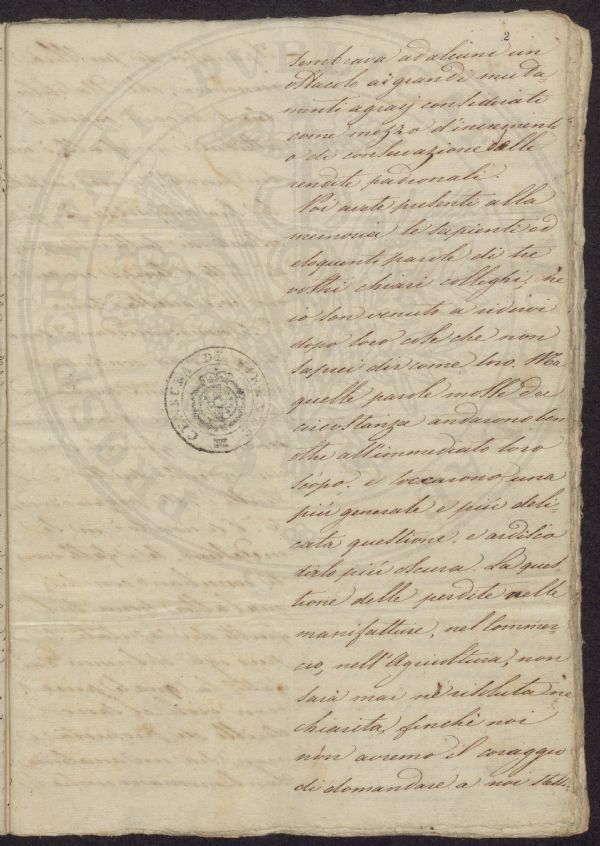 2
sembrava ad alcuni un
ostacolo ai grandi muta
menti agrarj considerati
come mezzo d'incremento
o di conservazione delle
rendite padronali.
Voi avete presenti alla
memoria le sapienti ed
eloquenti parole di tre
vostri chiari colleghi, ne
io son venuto a ridirvi
dopo loro cose che non
saprei dir come loro. Ma
quelle parole mosse da
circostanza andarono ben
oltre all'immediato loro
scopo, e toccarono una
più generale e più deli-
cata questione, e ardisco
dirlo più oscura. La ques
tione delle perdite nelle
manifatture, nel Commer-
cio, nell'Agricoltura, non
sarà mai nè risoluta nè
chiarita, finchè noi
non avremo il coraggio
di domandare a noi stessi
CENSURA DI FIRENZE